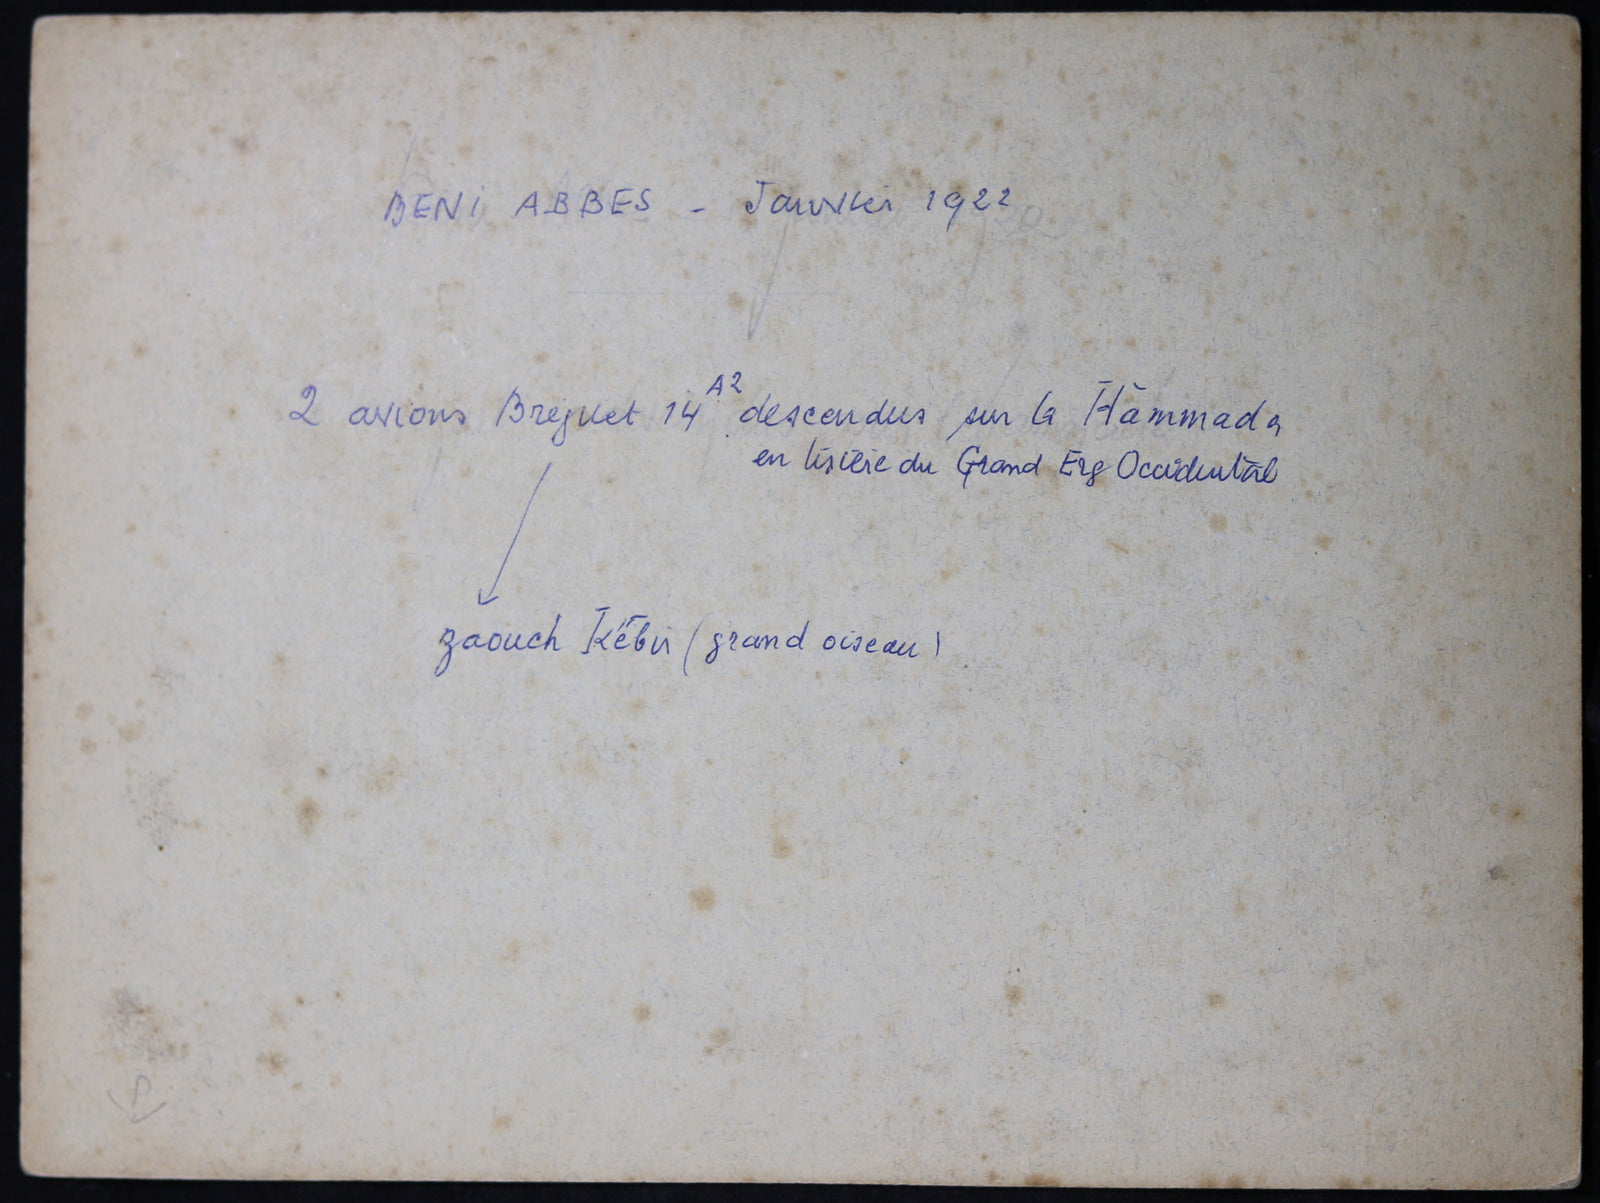 BENI ABBES - Janvier 1922
2 avions Breguet 14 A2 descendus sur la Hàmmada
en lisière du Grand Erg Occidental
zaouch Kébir (grand oiseau)